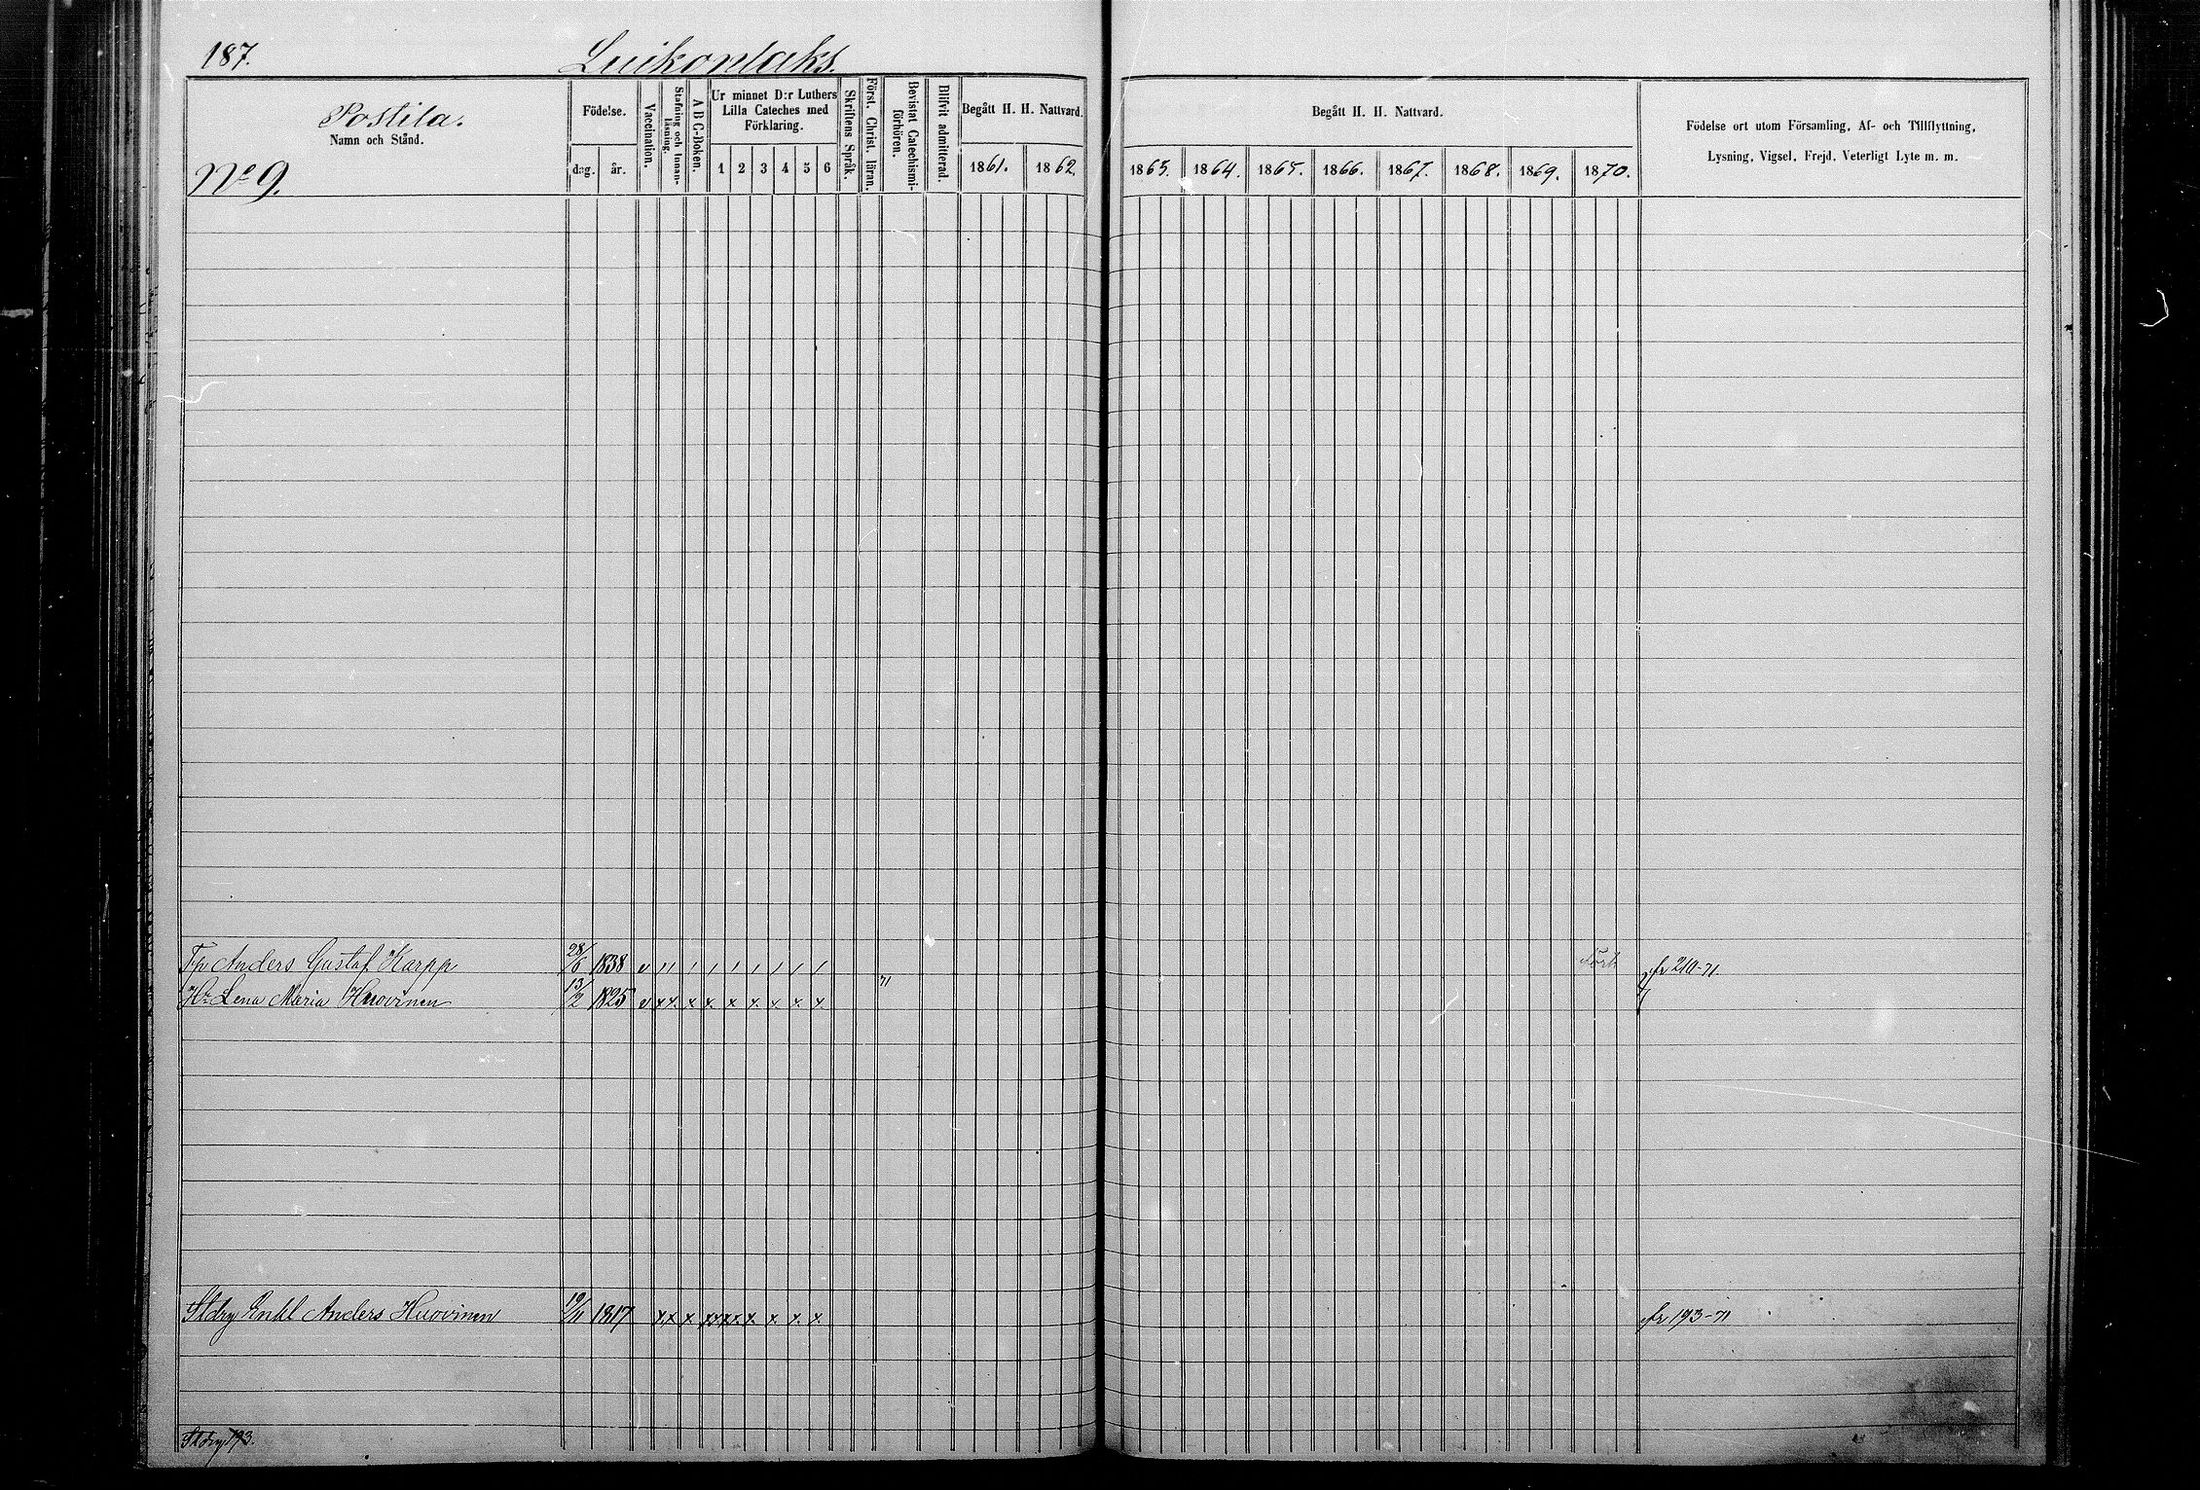 187.
Luikonlaks.
Postila.
Namn och Stånd.
No 9.
Födelse.
dag. år.
Vaccination.
Stafning och Innan-
läsning.
A B C-Boken.
Ur minnet D:r Luthers
Lilla Cateches med
Förklaring.
1 2 3 4 5 6
Skriftens Språk.
Först. Christ. läran.
Bevistat Catechismi-
förhören.
Blifvit admitterad.
Begått H. H. Nattvard.
1861. 1862.
Begått H. H. Nattvard.
1863. 1864. 1865. 1866. 1867. 1868. 1869. 1870.
Födelse ort utom Församling, Af- och Tillflyttning,
Lysning, Vigsel, Frejd, Veterligt Lyte m. m.
Tp Anders Gustaf Karpp 28/6 1838 v // / / / / / / / fr 210-71.
Hu Lena Maria Huovinen 13/2 1825 v xx x x x x x x x 71
Stdrg Enkl Anders Huovinen 19/11 1817 xx x xxxx x x x x fr 193-71
Stdrg 193.